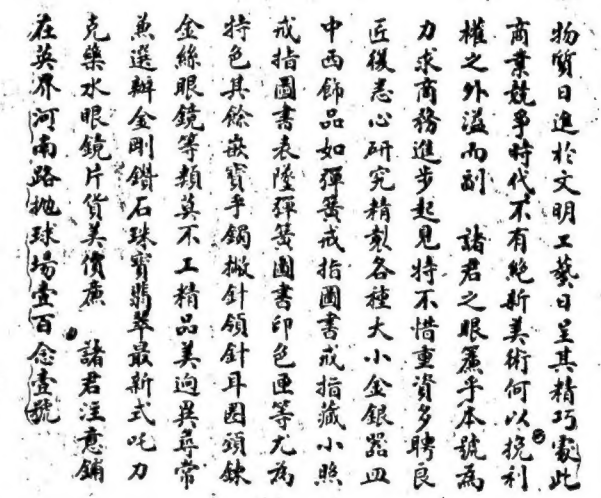 物質日進於文明工藝日呈其精巧處此
商業競爭時代不有絶新美術何以挽利
權之外溢而副　諸君之眼簾乎本號爲
力求商務進步起見特不惜重資多聘良
匠復悉心研究精製各種大小金銀器皿
中西飾品如彈簧戒指圖書戒指藏小照
戒指圖書表墜彈簧圖書印色匣等尤爲
特色其餘嵌寶手鐲撳針領針耳圈頸鍊
金絲眼鏡等類莫不工精品美迥異尋常
兼選辦金剛鑽石珠寶翡翠最新式叱力
克藥水眼鏡片貨美價廉　諸君注意鋪
在英界河南路抛球場壹百念壹號